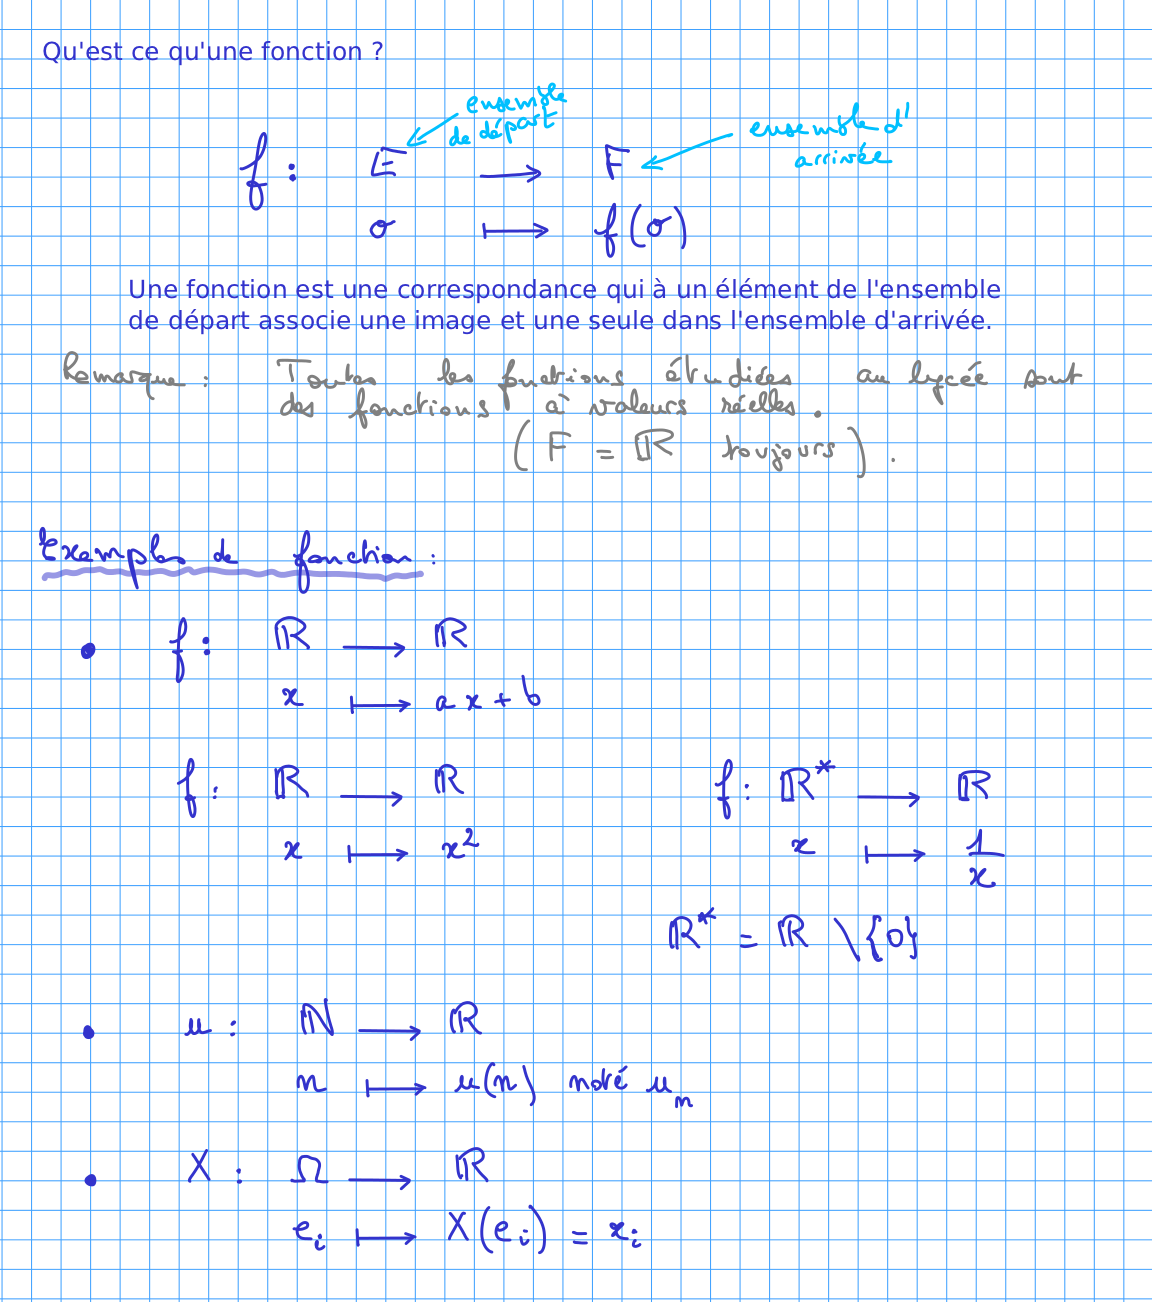 Qu'est ce qu'une fonction ?
ensemble
de départ
ensemble d'
arrivée
f : E ⟶ F
σ ⟼ f(σ)
Une fonction est une correspondance qui à un élément de l'ensemble
de départ associe une image et une seule dans l'ensemble d'arrivée.
Remarque : Toutes les fonctions étudiées au lycée sont
des fonctions à valeurs réelles.
(F = ℝ toujours).
Exemples de fonction :
• f : ℝ ⟶ ℝ
x ⟼ ax + b
f : ℝ ⟶ ℝ f : ℝ* ⟶ ℝ
x ⟼ x² x ⟼ 1/x
ℝ* = ℝ \ {0}
• u : ℕ ⟶ ℝ
n ⟼ u(n) noté uₙ
• X : Ω ⟶ ℝ
eᵢ ⟼ X(eᵢ) = xᵢ